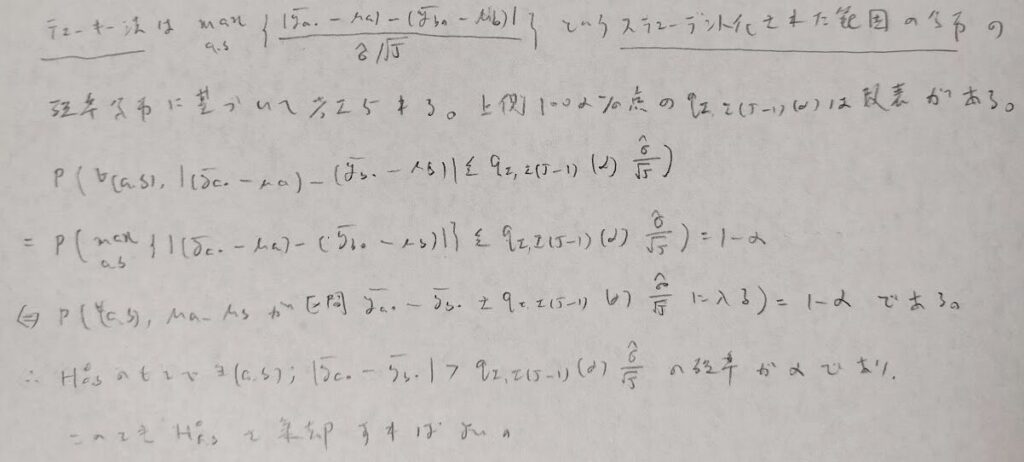 テューキー法は max_{a,b} { |(ȳ_{a・} − μ_a) − (ȳ_{b・} − μ_b)| / (σ̂/√J) } というスチューデント化された範囲の分布の
確率分布に基づいて定まる。上側100α%点の q_{I, I(J−1)}(α) は数表がある。
P( ∀(a,b), |(ȳ_{a・} − μ_a) − (ȳ_{b・} − μ_b)| ≤ q_{I, I(J−1)}(α) σ̂/√J )
= P( max_{a,b} { |(ȳ_{a・} − μ_a) − (ȳ_{b・} − μ_b)| } ≤ q_{I, I(J−1)}(α) σ̂/√J ) = 1−α
⇔ P( ∀(a,b), μ_a − μ_b が区間 ȳ_{a・} − ȳ_{b・} ± q_{I, I(J−1)}(α) σ̂/√J に入る ) = 1−α である。
∴ H のもとで ∃(a,b); |ȳ_{a・} − ȳ_{b・}| > q_{I, I(J−1)}(α) σ̂/√J の確率が α であり、
このとき H を棄却すればよい